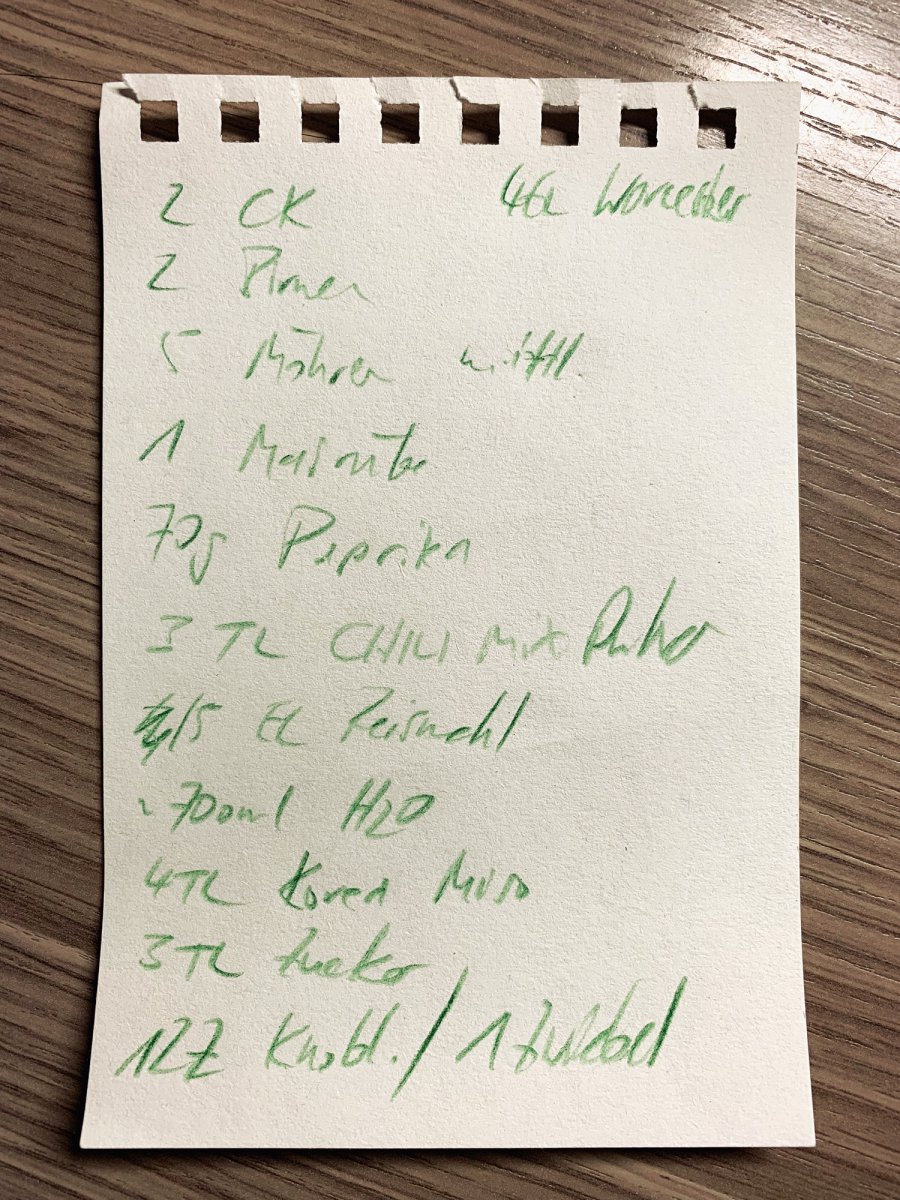 2 CK 4EL Worcester
2 Birnen
5 Möhren mittl.
1 Mairübe
70g Paprika
3 TL CHILI Mix Pulver
/5 EL Reismehl
~700ml H2O
4TL Korea Miso
3TL Zucker
12Z Knobl./ 1 Zwiebel